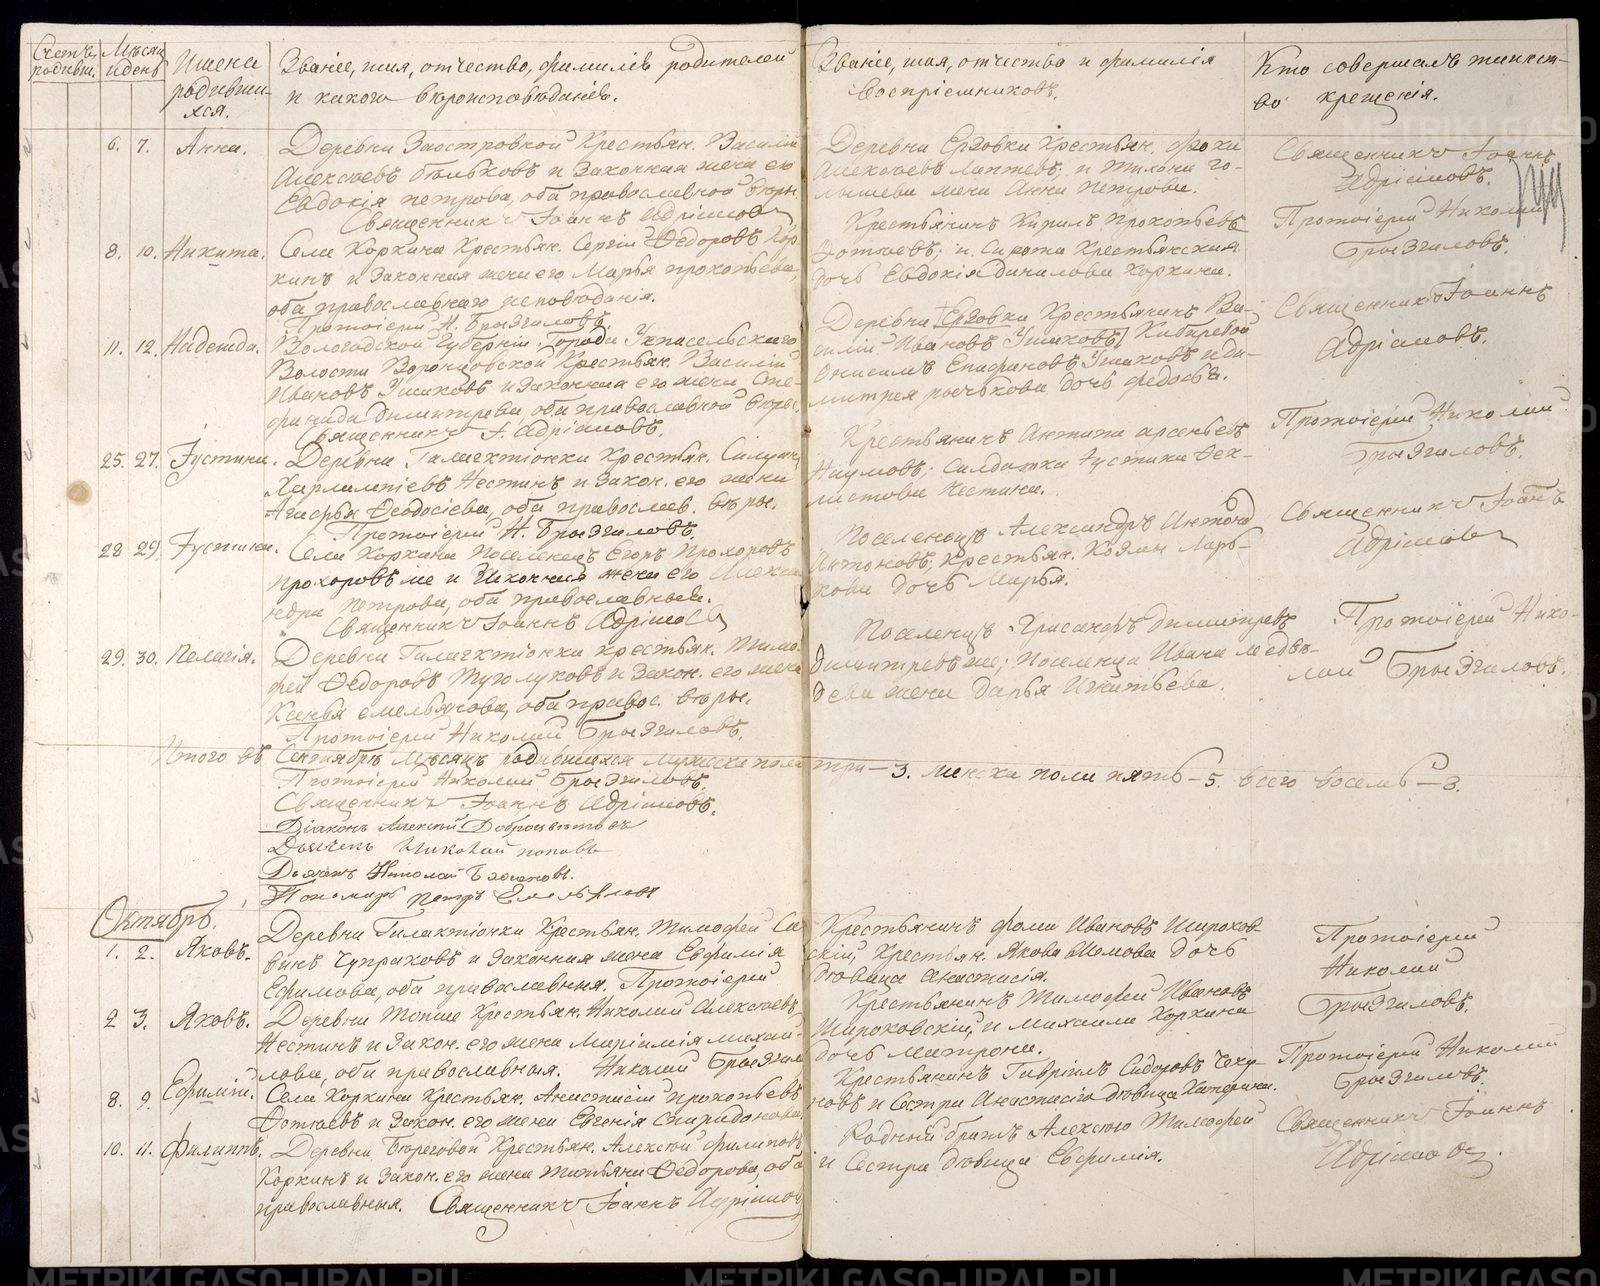 Счетъ родивш.
Мѣсяц и день
Имена родивши-
хся.
Званіе, имя, отчество, фамилія родителей
и какого вѣроисповѣданія.
Званіе, имя, отчество и фамилія
воспріемниковъ.
Кто совершалъ таинст-
во крещенія.
6. 7. Анна.
Деревни Заостровской Крестьян. Василій
Алексѣевъ Бѣльковъ и Законная жена его
Евдокія Петрова, оба православной вѣры.
Священникъ Іоаннъ Адріановъ
Деревни Ерзовки Крестьян. Фоки
Алексѣевъ Лаптевъ; и Тихона Го-
лышева жена Анна Петрова.
Священникъ Іоаннъ
Адріановъ.
8. 10. Никита.
Села Коркина Крестьян. Сергій Ѳедоровъ Кор-
кинъ и Законная жена его Марья Прокопьева,
оба православнаго исповѣданія.
Протоіерей Н. Брызгаловъ.
Крестьянинъ Кирилъ Прокопьевъ
Фотѣевъ; и Сирота Крестьянская
дочь Евдокія Данилова Коркина.
Протоіерей Николай
Брызгаловъ.
11. 12. Надежда.
Вологодской Губерніи Города
Волости Воронцовской Крестьян. Василій
Ивановъ Ушаковъ и Законная его жена Сте-
фанида Димитрева оба православной вѣры,
Священникъ І. Адріановъ.
Деревни Ерзовки Крестьянинъ Ва-
силій Ивановъ Ушаковъ
Онисимъ Епифановъ Ушаковъ и Ди-
митрея дочь Федосья.
Священникъ Іоаннъ
Адріановъ.
25. 27. Іустина.
Деревни Галактіонки Крестьян. Силуанъ
Харлампіевъ Нестинъ и Закон. его жена
Агафья Ѳеодосіева, оба православ. вѣры.
Протоіерей Н. Брызгаловъ.
Крестьянинъ Антипа Арсеньевъ
Наумовъ; Салдатка Іустина Фек-
листова Нестина.
Протоіерей Николай
Брызгаловъ.
28 29. Іустина.
Села Коркина Поселенецъ Егоръ Прохоровъ
Прохоровъ же и Законная жена его Алекса-
ндра Петрова, оба православныя.
Священникъ Іоаннъ Адріановъ
Поселенецъ Александръ Антонов
Антоновъ; Крестьян. Козмы Ларь-
кова дочь Марья.
Священникъ Іоаннъ
Адріановъ
29. 30. Пелагія.
Деревни Галактіонки Крестьян. Тимо-
фей Ѳедоровъ Туголуковъ и Закон. его жена
Ксенья Емельянова, оба правос. вѣры.
Протоіерей Николай Брызгаловъ.
Поселенецъ Хрисанфъ Димитревъ
Димитревъ же; Поселенца Ивана Медвѣ-
дева жена Дарья Игнатьева.
Протоіерей Нико-
лай Брызгаловъ.
Итого въ Сентябрѣ Мѣсяцѣ родившихся мужеска пола три – 3. женска пола пять – 5. всего восемь – 8.
Протоіерей Николай Брызгаловъ.
Священникъ Іоаннъ Адріановъ.
Діаконъ Алексѣй Доброцвѣтовъ
Дьячекъ Николай Поповъ
Дьячекъ Николай
Пономарь Петръ Емельяновъ
Октябрь.
1. 2. Яковъ.
Деревни Галактіонки Крестьян. Тимофей Са-
винъ Чупраковъ и Законная жена Евфимія
Ефимова, оба православныя. Протоіерей
Николай Брызгал
Крестьянинъ Фома Ивановъ Широков-
скій, Крестьян. Якова Шамова дочь
дѣвица Анастасія.
Протоіерей
Николай
Брызгаловъ.
2 3. Яковъ.
Деревни Топше Крестьян. Николай Алексѣевъ
Нестинъ и Закон. его жена Маріамія Михай-
лова, оба православныя.
Крестьянинъ Тимофей Ивановъ
Широковскій, и Михаила Коркина
дочь Матрона.
Протоіерей Николай
Брызгаловъ.
8. 9. Ефимій.
Села Коркина Крестьян. Анастасій Прокопьевъ
Фотѣевъ и Закон. его жена Евгенія Спиридонова
Крестьянинъ Гаврілъ Сидоровъ Чеку-
новъ и Сестра Анастасія дѣвица Катерина.
10. 11. Филиппъ.
Деревни Береговой Крестьян. Алексѣй Филиповъ
Коркинъ и Закон. его жена Татьяна Ѳедорова, оба
православныя. Священникъ Іоаннъ Адріановъ
Родный братъ Алексѣю Тимофей
и Сестра дѣвица Евфимія.
Священникъ Іоаннъ
Адріановъ.
METRIKI.GASO-URAL.RU